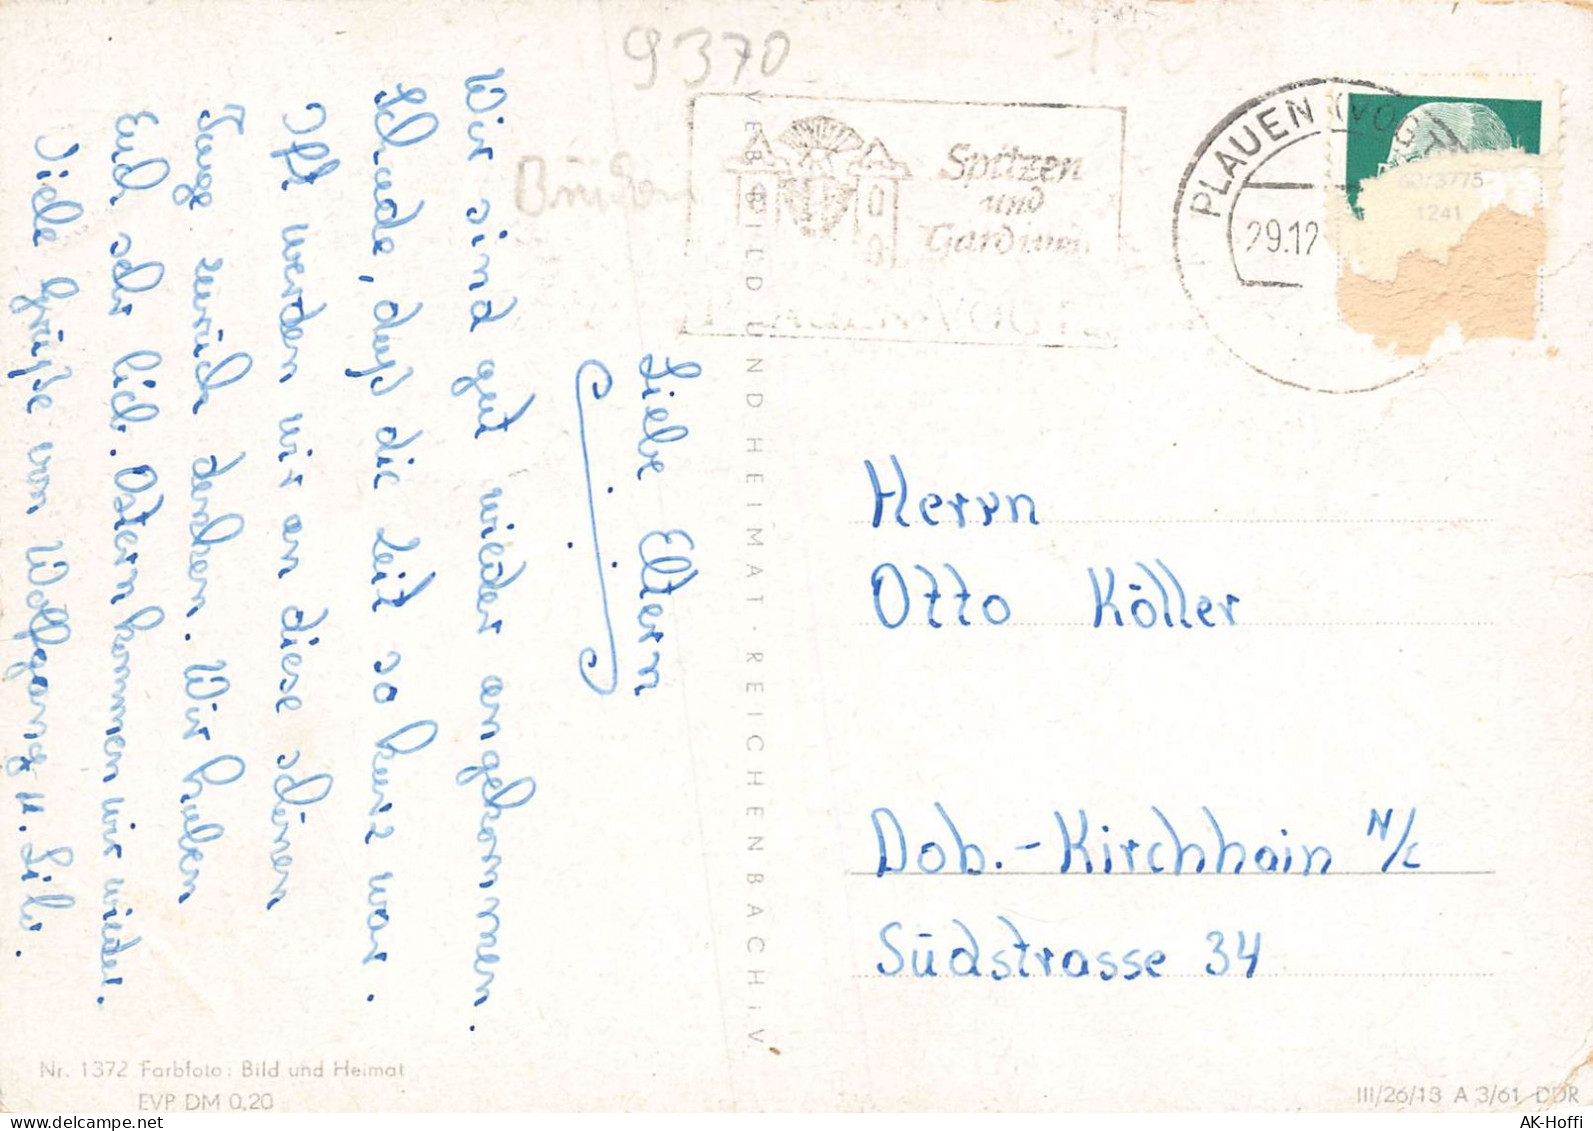 9370
Brücken
Spitzen
und
Gardinen
PLAUEN (VOGTL
29.12
60/3775
1241
Liebe Eltern
Wir sind gut wieder angekommen.
Schade, daß die Zeit so kurz war.
Oft werden wir an diese schönen
Tage zurück denken. Wir haben
Euch sehr lieb. Ostern kommen wir wieder.
Viele Grüße von Wolfgang u. Silv.
VEB BILD UND HEIMAT · REICHENBACH i. V.
Herrn
Otto Köller
Dob.-Kirchhain N/L
Südstrasse 34
Nr. 1372 Farbfoto: Bild und Heimat
EVP DM 0,20
III/26/13 A 3/61 DDR
AK-Hoffi